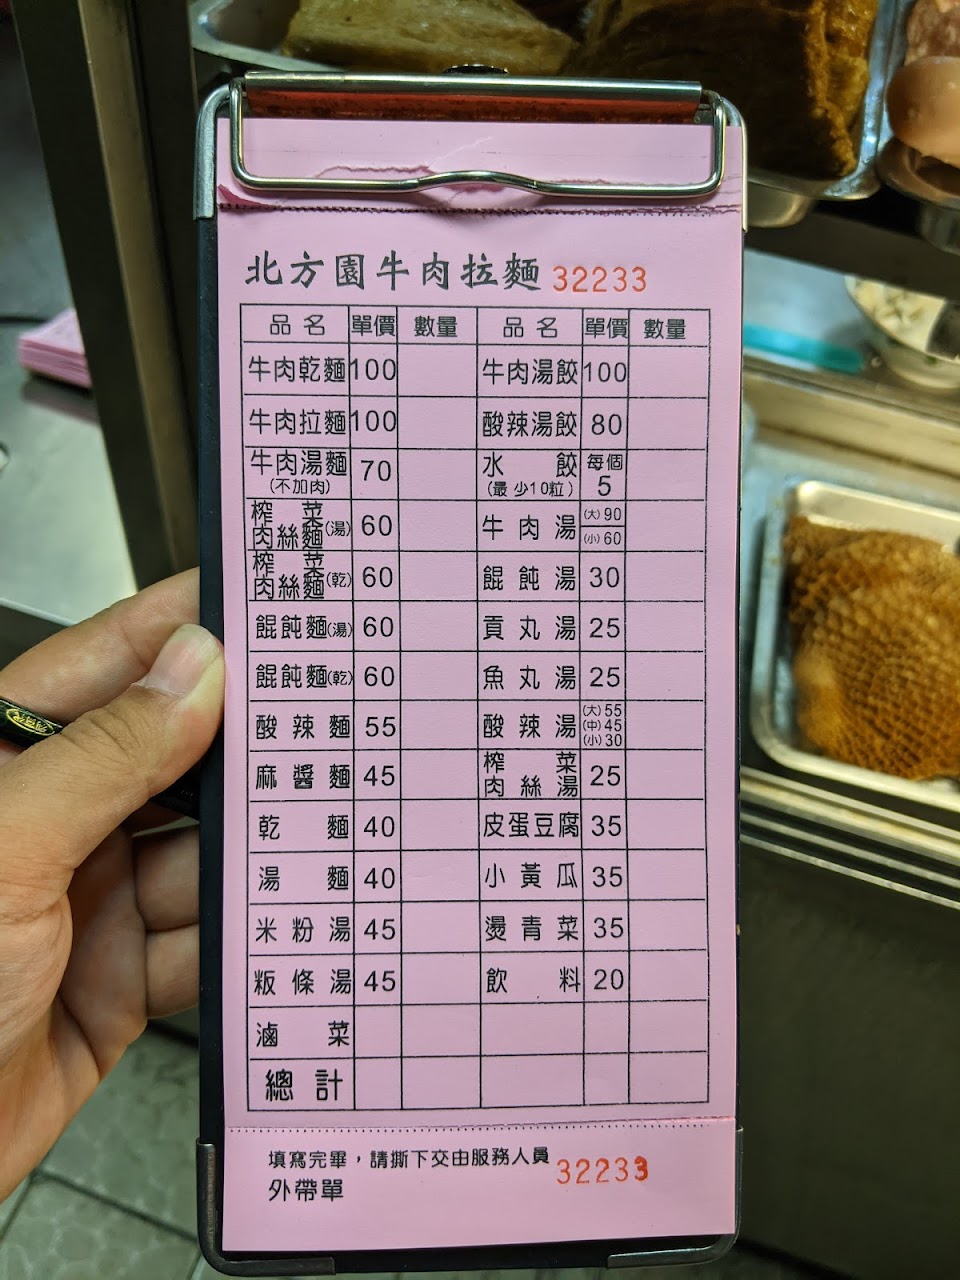 北方園牛肉拉麵 32233
品名 單價 數量 品名 單價 數量
牛肉乾麵 100 牛肉湯餃 100
牛肉拉麵 100 酸辣湯餃 80
牛肉湯麵(不加肉) 70 水餃(最少10粒) 每個5
榨菜肉絲麵(湯) 60 牛肉湯 (大)90 (小)60
榨菜肉絲麵(乾) 60 餛飩湯 30
餛飩麵(湯) 60 貢丸湯 25
餛飩麵(乾) 60 魚丸湯 25
酸辣麵 55 酸辣湯 (大)55 (中)45 (小)30
麻醬麵 45 榨菜肉絲湯 25
乾麵 40 皮蛋豆腐 35
湯麵 40 小黃瓜 35
米粉湯 45 燙青菜 35
粄條湯 45 飲料 20
滷菜
總計
填寫完畢，請撕下交由服務人員 32233
外帶單